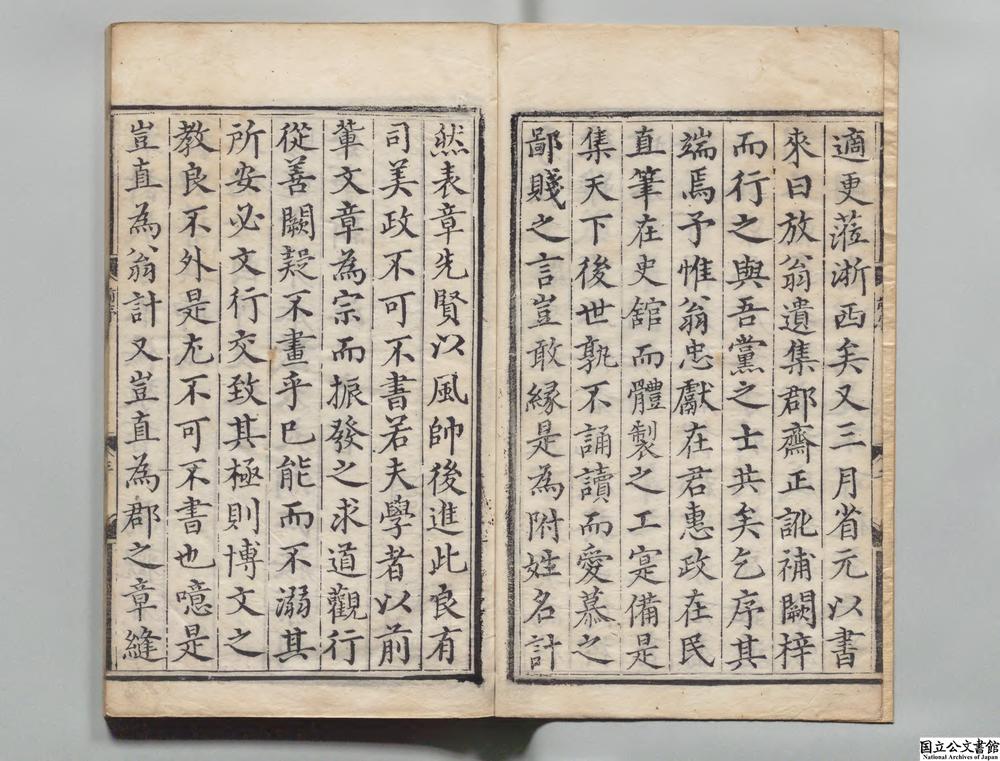 適更蒞浙西矣又三月省元以書
來曰放翁遺集郡齋正訛補闕梓
而行之與吾黨之士共矣乞序其
端焉予惟翁忠獻在君惠政在民
直筆在史舘而體製之工寔備是
集天下後世孰不誦讀而愛慕之
鄙賤之言豈敢縁是為附姓名計
然表章先賢以風帥後進此良有
司美政不可不書若夫學者以前
輩文章為宗而振發之求道觀行
從善闕疑不畫乎已能而不溺其
所安必文行交致其極則博文之
教良不外是尤不可不書也噫是
豈直為翁計又豈直為郡之章縫
国立公文書館
National Archives of Japan